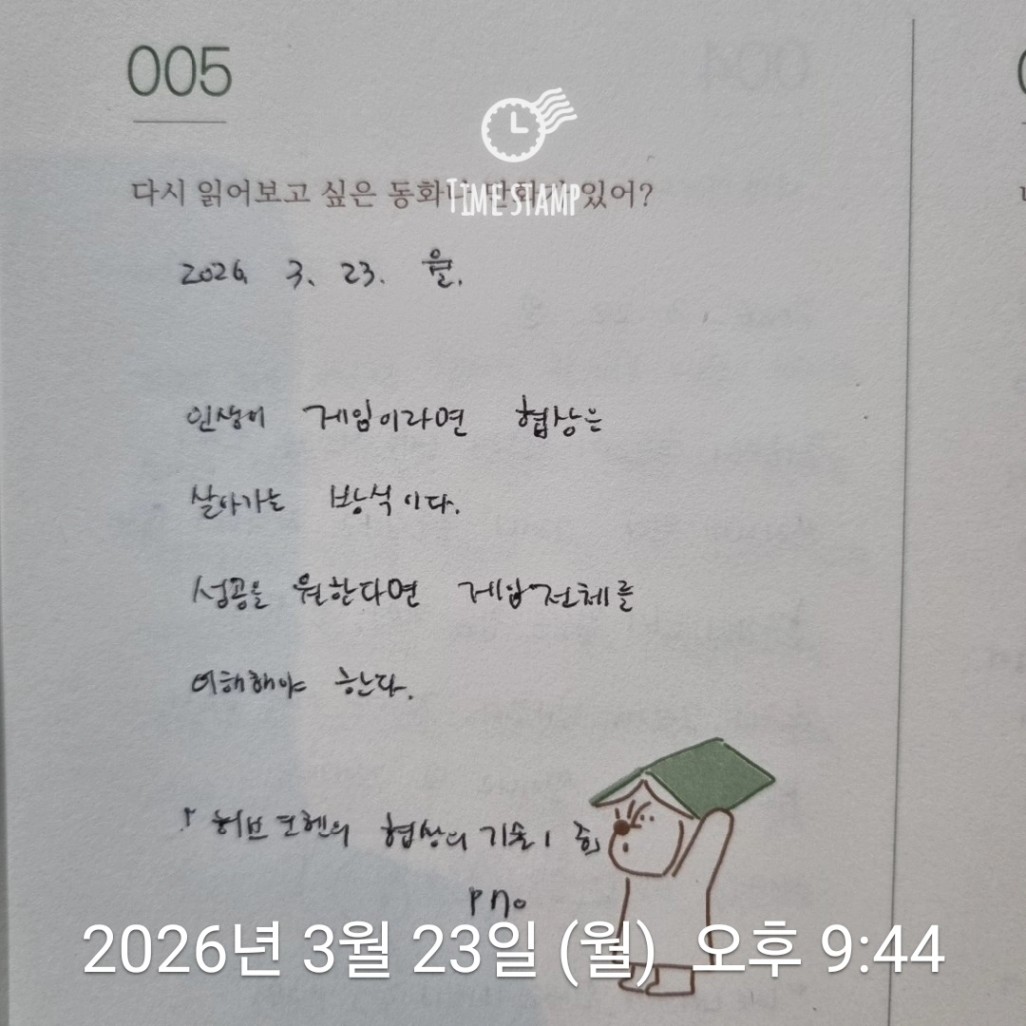 005
다시 읽어보고 싶은 동화나 만화가 있어?
TIME STAMP
2026. 3. 23. 월.
인생이 게임이라면 협상은
살아가는 방식이다.
성공을 원한다면 게임전체를
이해해야 한다.
『허브 코헨의 협상의 기술 1 중』
P 70
2026년 3월 23일 (월) 오후 9:44